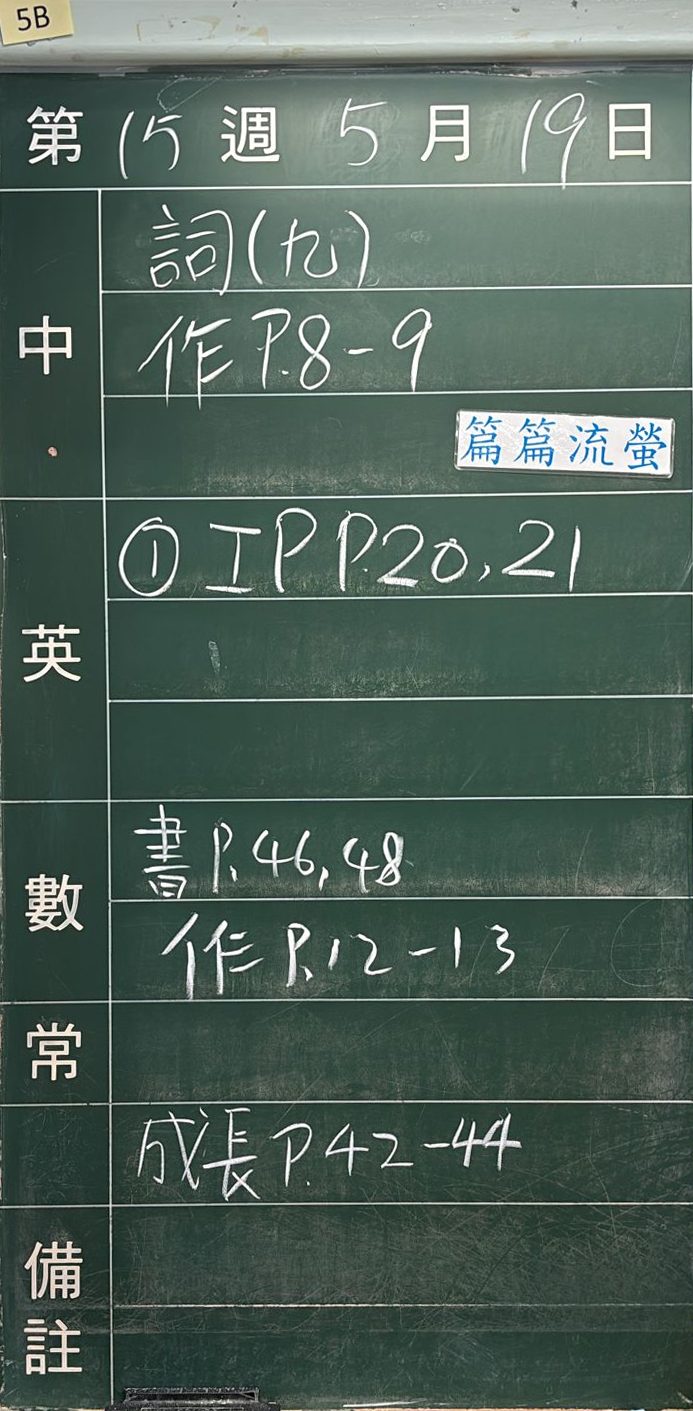 5B
第 15 週 5 月 19 日
中
詞(九)
作 P.8-9
篇篇流螢
英
① IP P.20,21
數
書 P.46,48
作 P.12-13
常
成長 P.42-44
備註